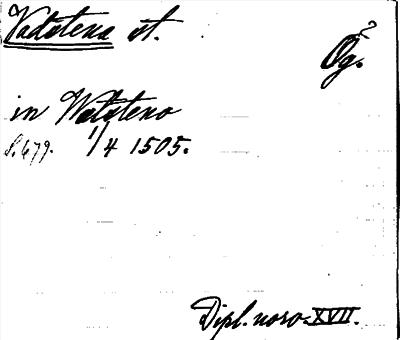 Vadstena st.
Ög.
in Watzteno
S. 679. 1/4 1505.
Dipl. norv. XVII.